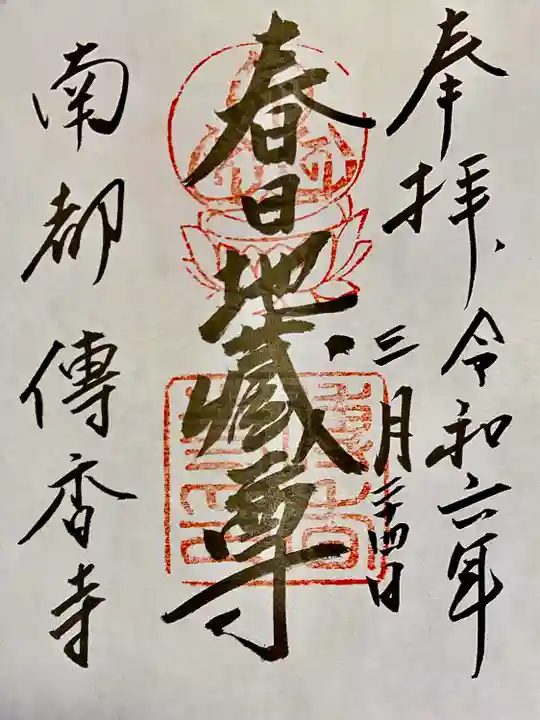 奉拝
令和六年
三月二十四日
春日地藏尊
南都傳香寺